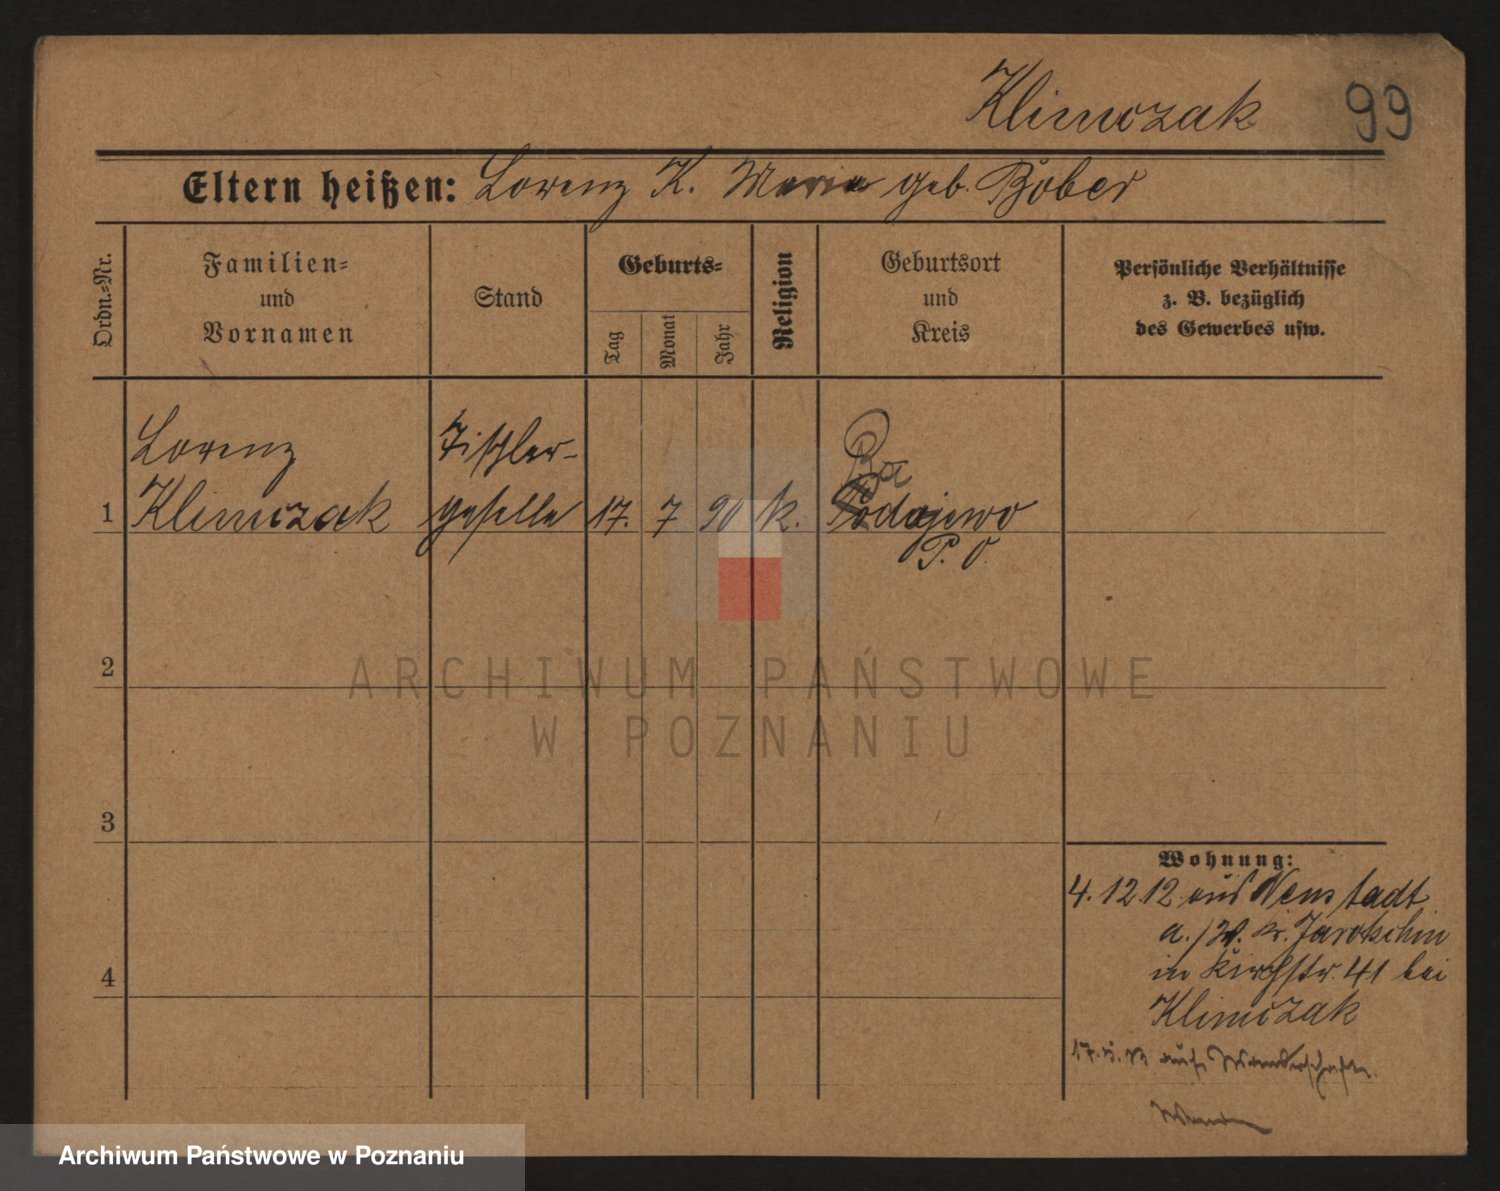 Klimczak 99
Eltern heißen: Lorenz K. Maria geb. Bober
Ordn.-Nr.
Familien-
und
Vornamen
Stand
Geburts-
Tag
Monat
Jahr
Religion
Geburtsort
und
Kreis
Persönliche Verhältnisse
z. B. bezüglich
des Gewerbes usw.
Lorenz
Tischler-
Ba
1 Klimczak geselle 17. 7 90 k. Podajewo
P. O.
2
3
4
Wohnung:
4.12.12 aus Neustadt
a./W. Kr. Jarotschin
in Kirchstr. 41 bei
Klimczak
auf Wanderschaft.
ARCHIWUM PAŃSTWOWE
W POZNANIU
Archiwum Państwowe w Poznaniu